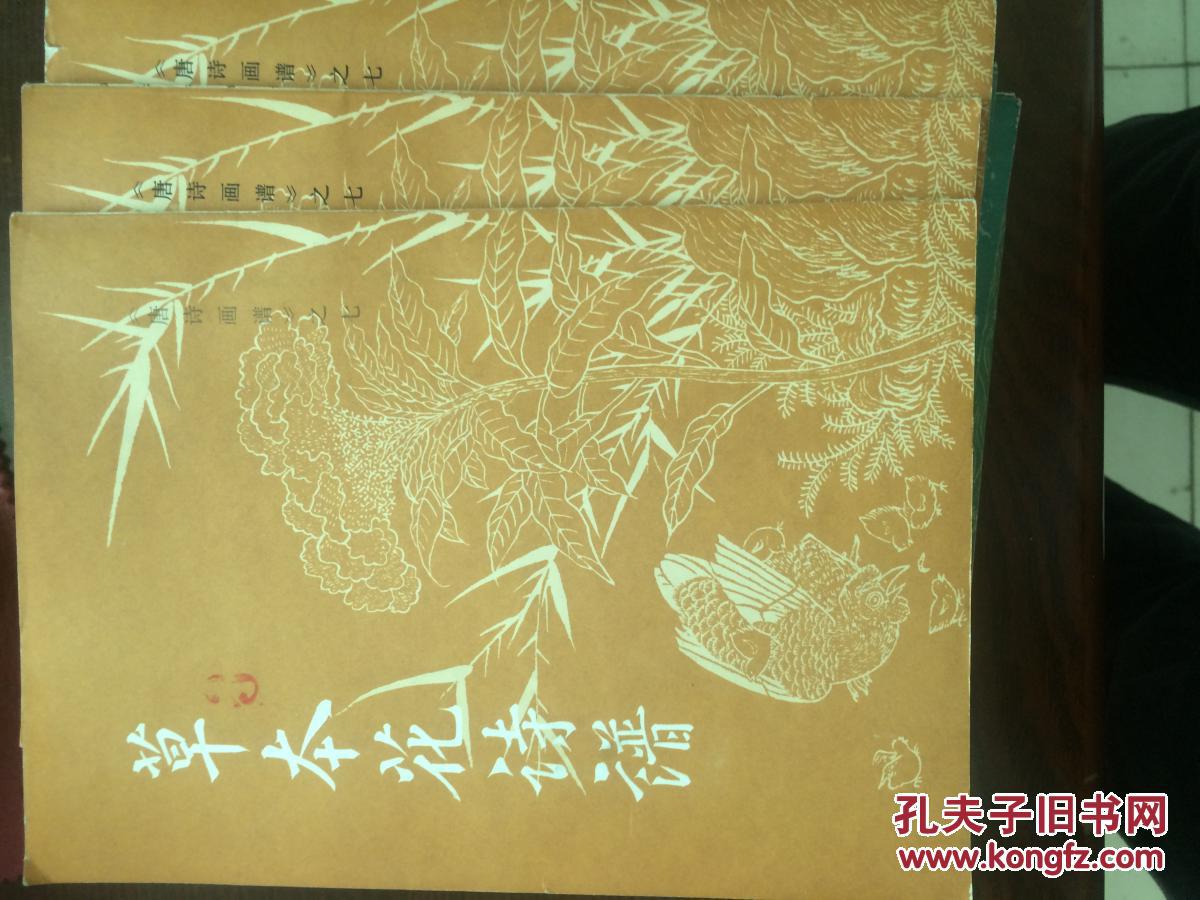 《唐诗画谱》之七
《唐诗画谱》之七
《唐诗画谱》之七
草本花诗谱
孔夫子旧书网
www.kongfz.com